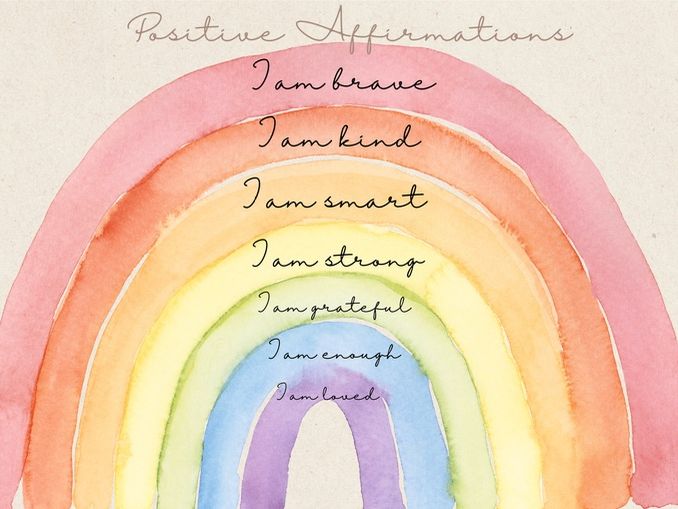 Positive Affirmations
I am brave
I am kind
I am smart
I am strong
I am grateful
I am enough
I am loved